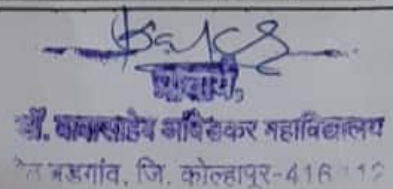 प्राचार्य,
डॉ. बाबासाहेब आंबेडकर महाविद्यालय
वडगांव, जि. कोल्हापूर-416 112